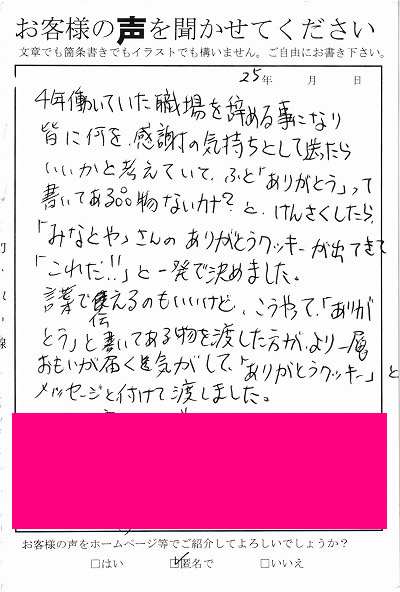 お客様の声を聞かせてください
文章でも箇条書きでもイラストでも構いません。ご自由にお書き下さい。
25年 月 日
4年働いていた職場を辞める事になり
皆に何を感謝の気持ちとして送たら
いいかと考えていて、ふと「ありがとう」って
書いてある。。物ないカナ?と、けんさくしたら、
「みなとや」さんの ありがとうクッキーが出てきて
「これだ!!」と一発で決めました。
言葉で伝えるのもいいけど、こうやって、「ありが
とう」と書いてある物を渡した方が、より一層
おもいが届く気がして、「ありがとうクッキー」と
メッセージと付けて渡しました。
お客様の声をホームページ等でご紹介してよろしいでしょうか?
□はい ☑匿名で □いいえ